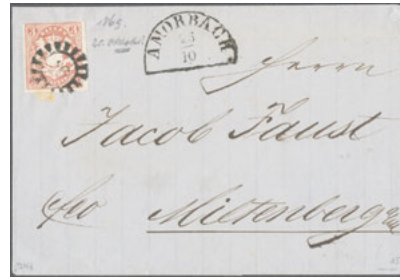 3 3
1869.
AMORBACH
25
10
Herrn
Jacob Faust
fco Miltenberg